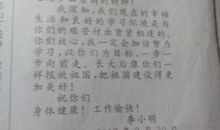 我深知，我们现在的幸福
生活和良好的学习环境是与
你们的艰苦付出紧紧相连的，
你们放心，我一定会加倍努力
学习，以你们为目标，一步一
步向前走。长大后像你们一
样报效祖国，把祖国建设得更
加美好！
祝你们
身体健康！工作愉快！
李小明